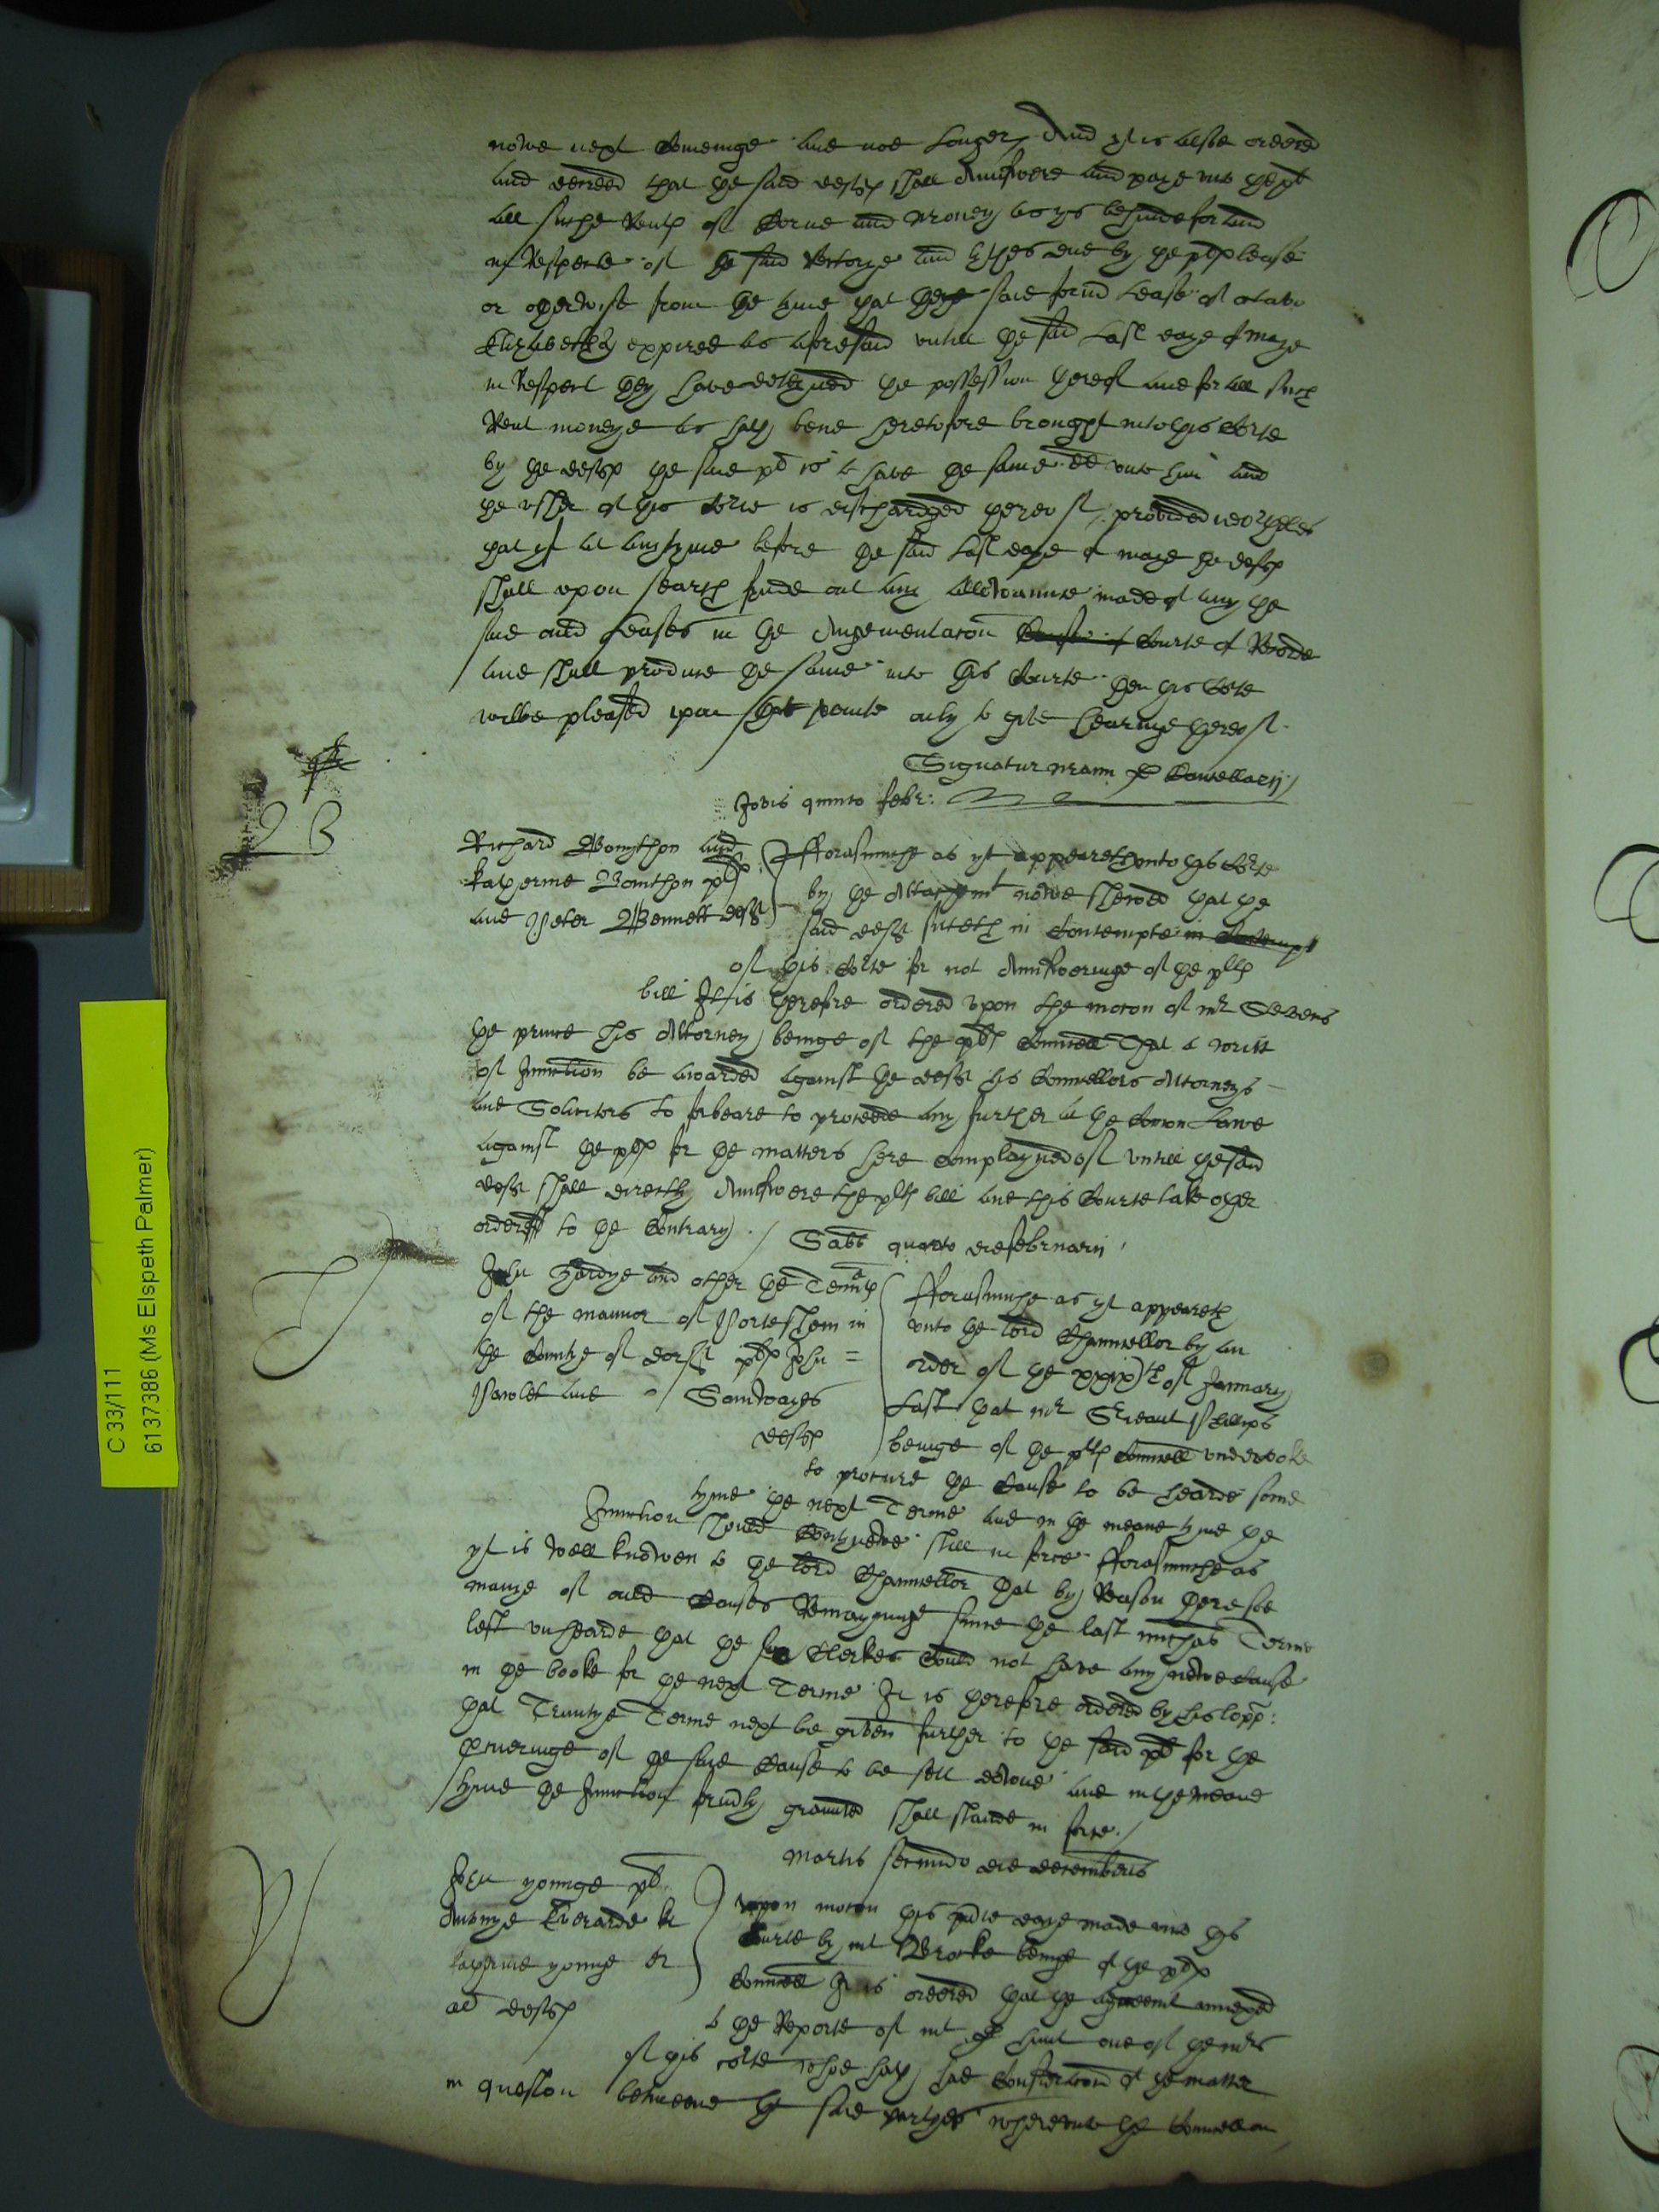 nowe next Comeinge and noe longer And yt is alsoe ordered
and decreed that the said defts shall Aunswere and paye unto the plt
all suche Rents of Corne and money as ys behinde for and
in Respecte of the said Rectorye and tythes due by the plts lease
or otherwise from the tyme that the said form lease of
Elizabeth expired as aforesaid untill the said last daye of maye
in Respect they have deteyned the possession thereof and for all such
Rent moneye as hath bene heretofore brought into this Corte
by the defts the said plt is to have the same dd unto him and
the ussher of this Corte is discharged thereof, provided nevertheles
that yf at any tyme before the said last daye of maye the defts
shall upon search finde out any allowaunce made of any the
said ould leases in the Augementacon Courte of Recorde
and shall produce the same into this Courte then this Corte
wilbe pleased upon that pointe only to give hearinge thereof
Signatur manu Cancellarij
Jovis quinto febr:
B
Richard Bonython and
Katherine Bonithon plts
and Peter Bennett deft
fforasmuche as yt appeareth unto this Corte
by the Attachmt nowe shewed that the
said deft sitteth in Contempte in Contempt
of this Corte for not Aunsweringe of the plts
bill It is therefore ordered upon the mocon of mr Stevens
the prince his Attorney beinge of the plts Councell That a writt
of Iniunction be awarded against the deft his Counsellors Attorneys
and Solicitors to forbeare to proceede any further at the Comon Lawe
against the plts for the matters here complayned of untill the said
deft shall directly Aunswere the plts bill and this Courte take other
order to the Contrary./ Sabb quarto die februarij
John Hardye and other the Tennts
of the mannor of Porteshom in
the Countye of dorst plts John =
Pawlet and / Somwayes
defts
fforasmuche as yt appeareth
unto the Lord Channcellor by an
order of the xxixth of January
last that mr Serieaut Phillips
beinge of the plts Councell undertooke
to procure the Cause to be heard some
tyme the next Terme and in the meane tyme the
Iniunction should Contynewe still in force fforasmuche as
yt is well knowen to the Lord Channcellor that by Reason there are
manye of ould Causes Remayninge since the last michas Terme
left unhearde that the six Clerkes Could not have any newe Cause
in the booke for the next Terme It is therefore ordered by his lopp:
that Trinitye Terme next be given further to the said plt for the
procuringe of the said Cause to be sett downe and in the meane
tyme the Iniunction formly graunted shall stande in force./
martis secundo die decembris
John younge plt
Antonye Everarde Kt
Katherine younge et
al defts
Uppon mocon this psente daye made unto this
Courte by mr Brocke beinge of the plts
Councell It is ordered that the agreemt annexed
to the Reporte of mr hunt one of the mrs
of this Corte whoe hath had Consideracon of the matter
in question betweene the said partyes whereunto the Councell on
C 33/111
6137386 (Ms Elspeth Palmer)